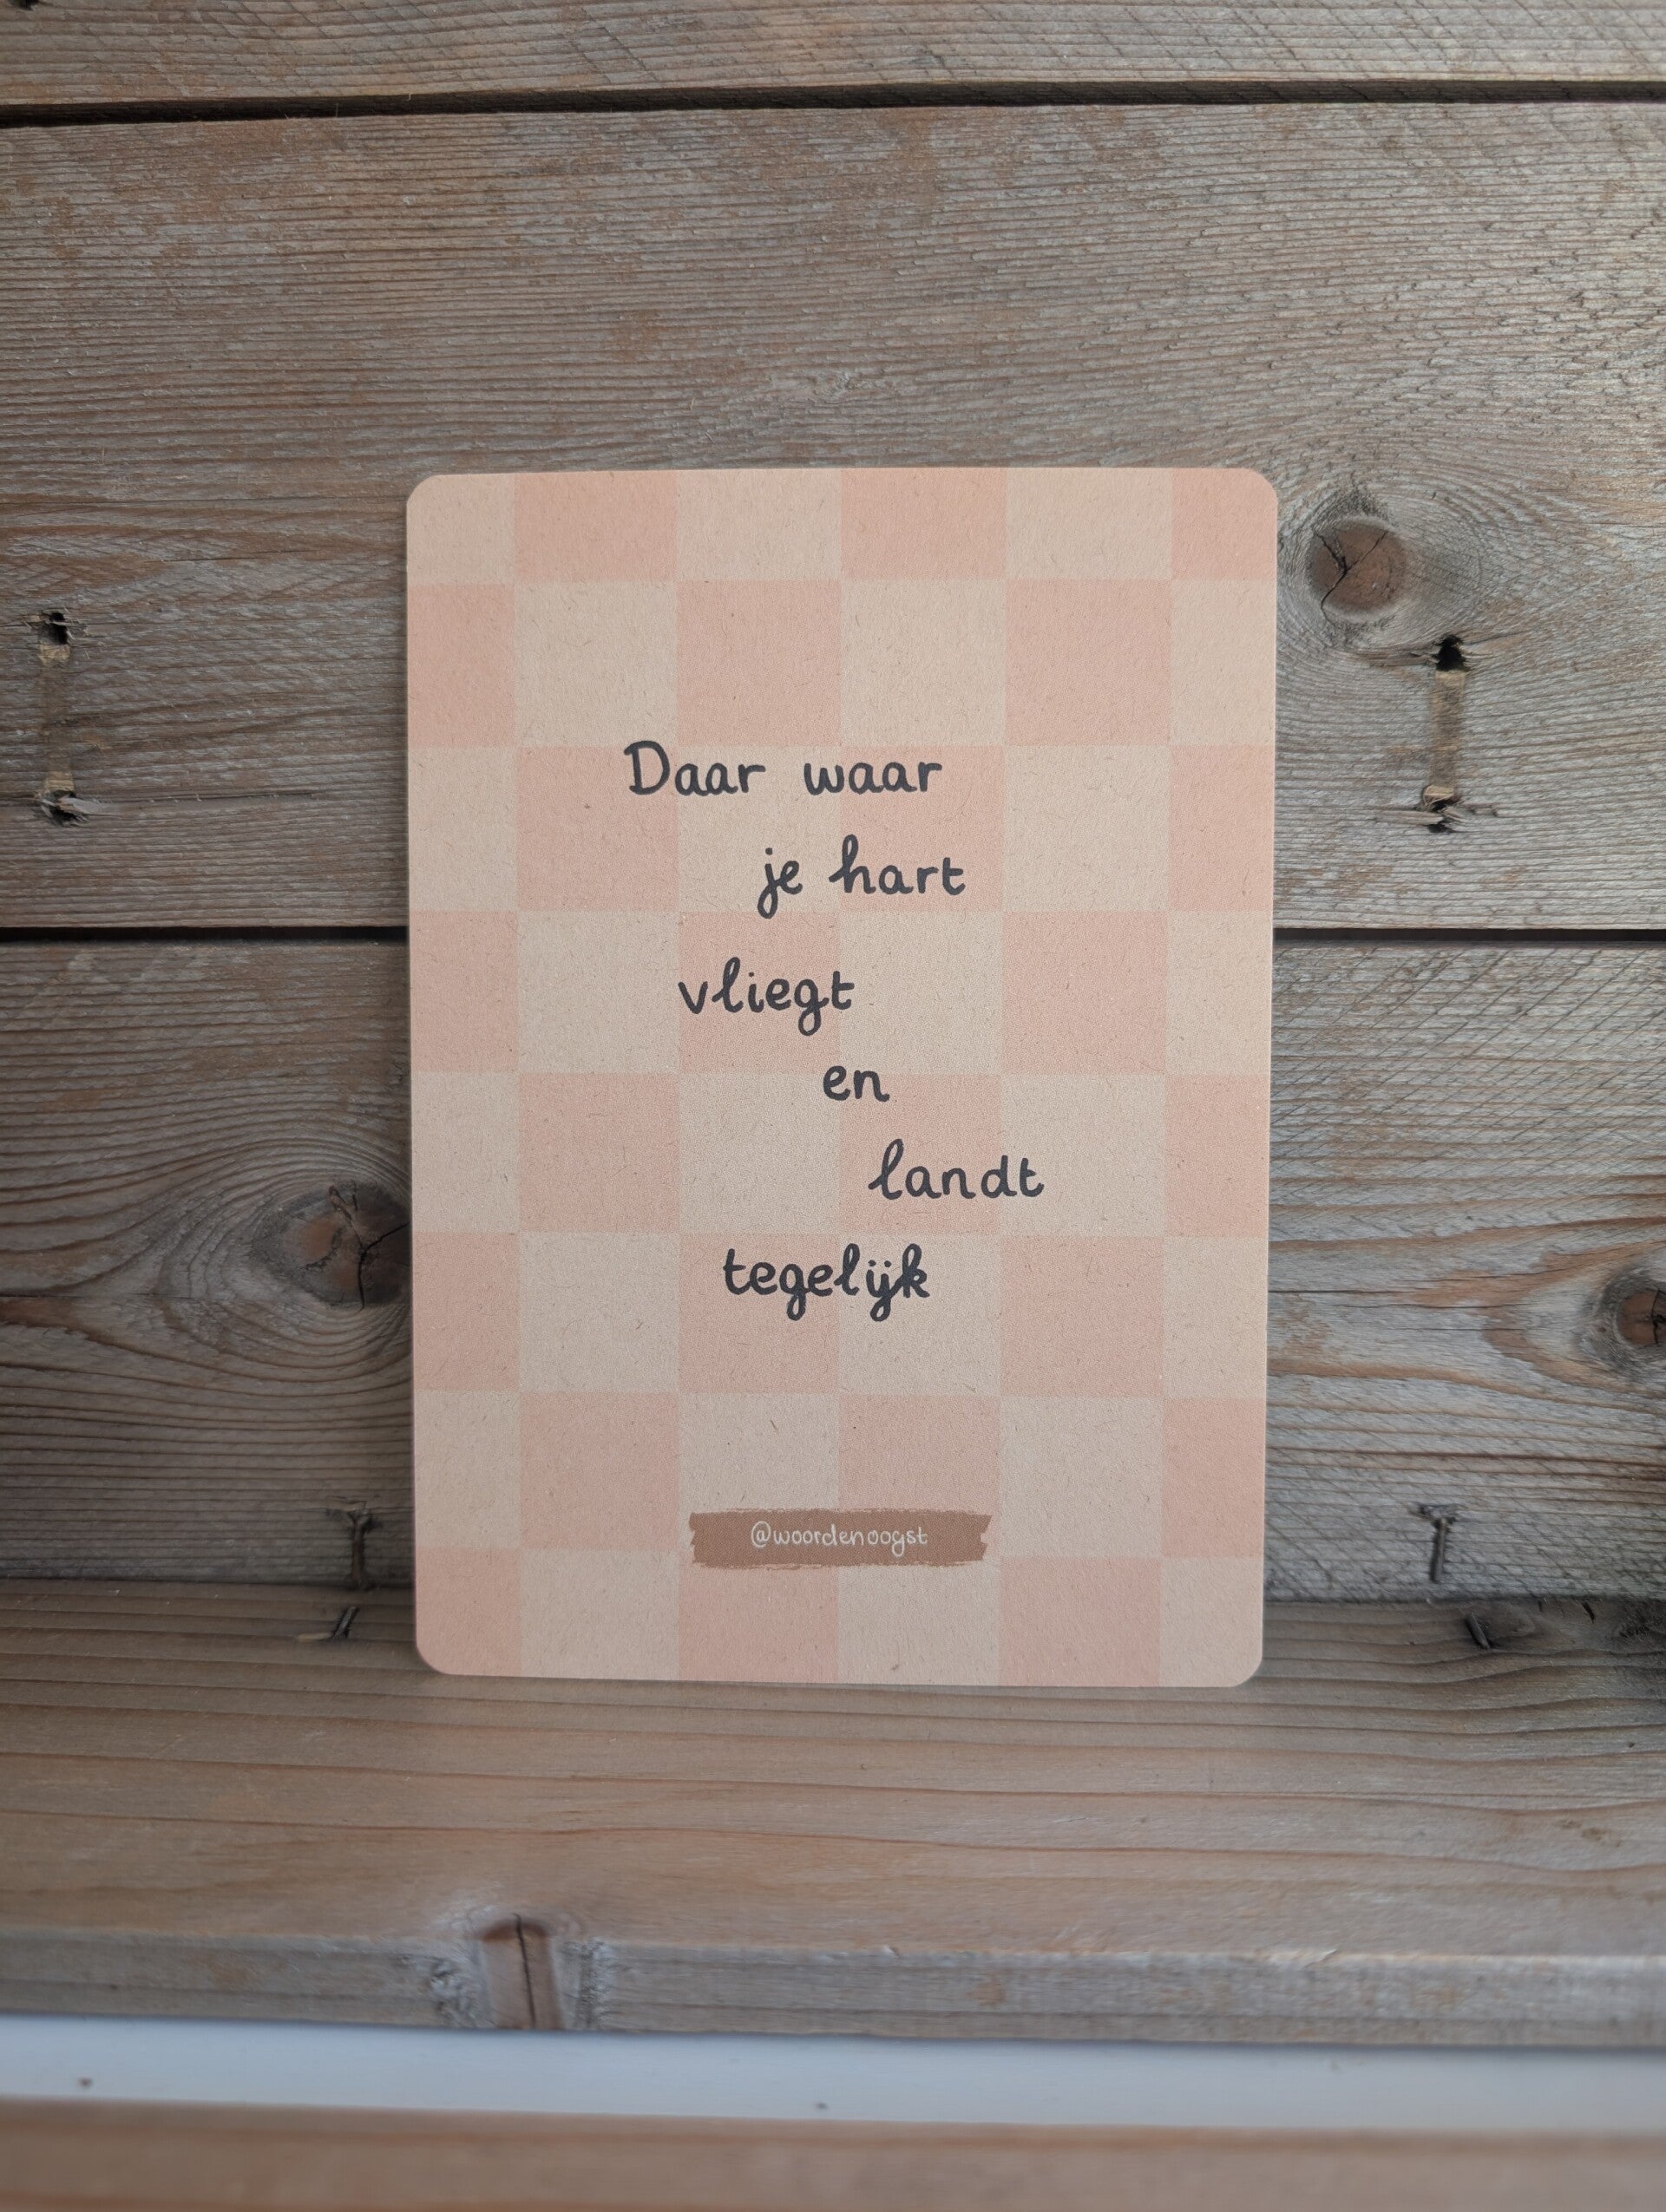 Daar waar
je hart
vliegt
en
landt
tegelijk
@woordenoogst